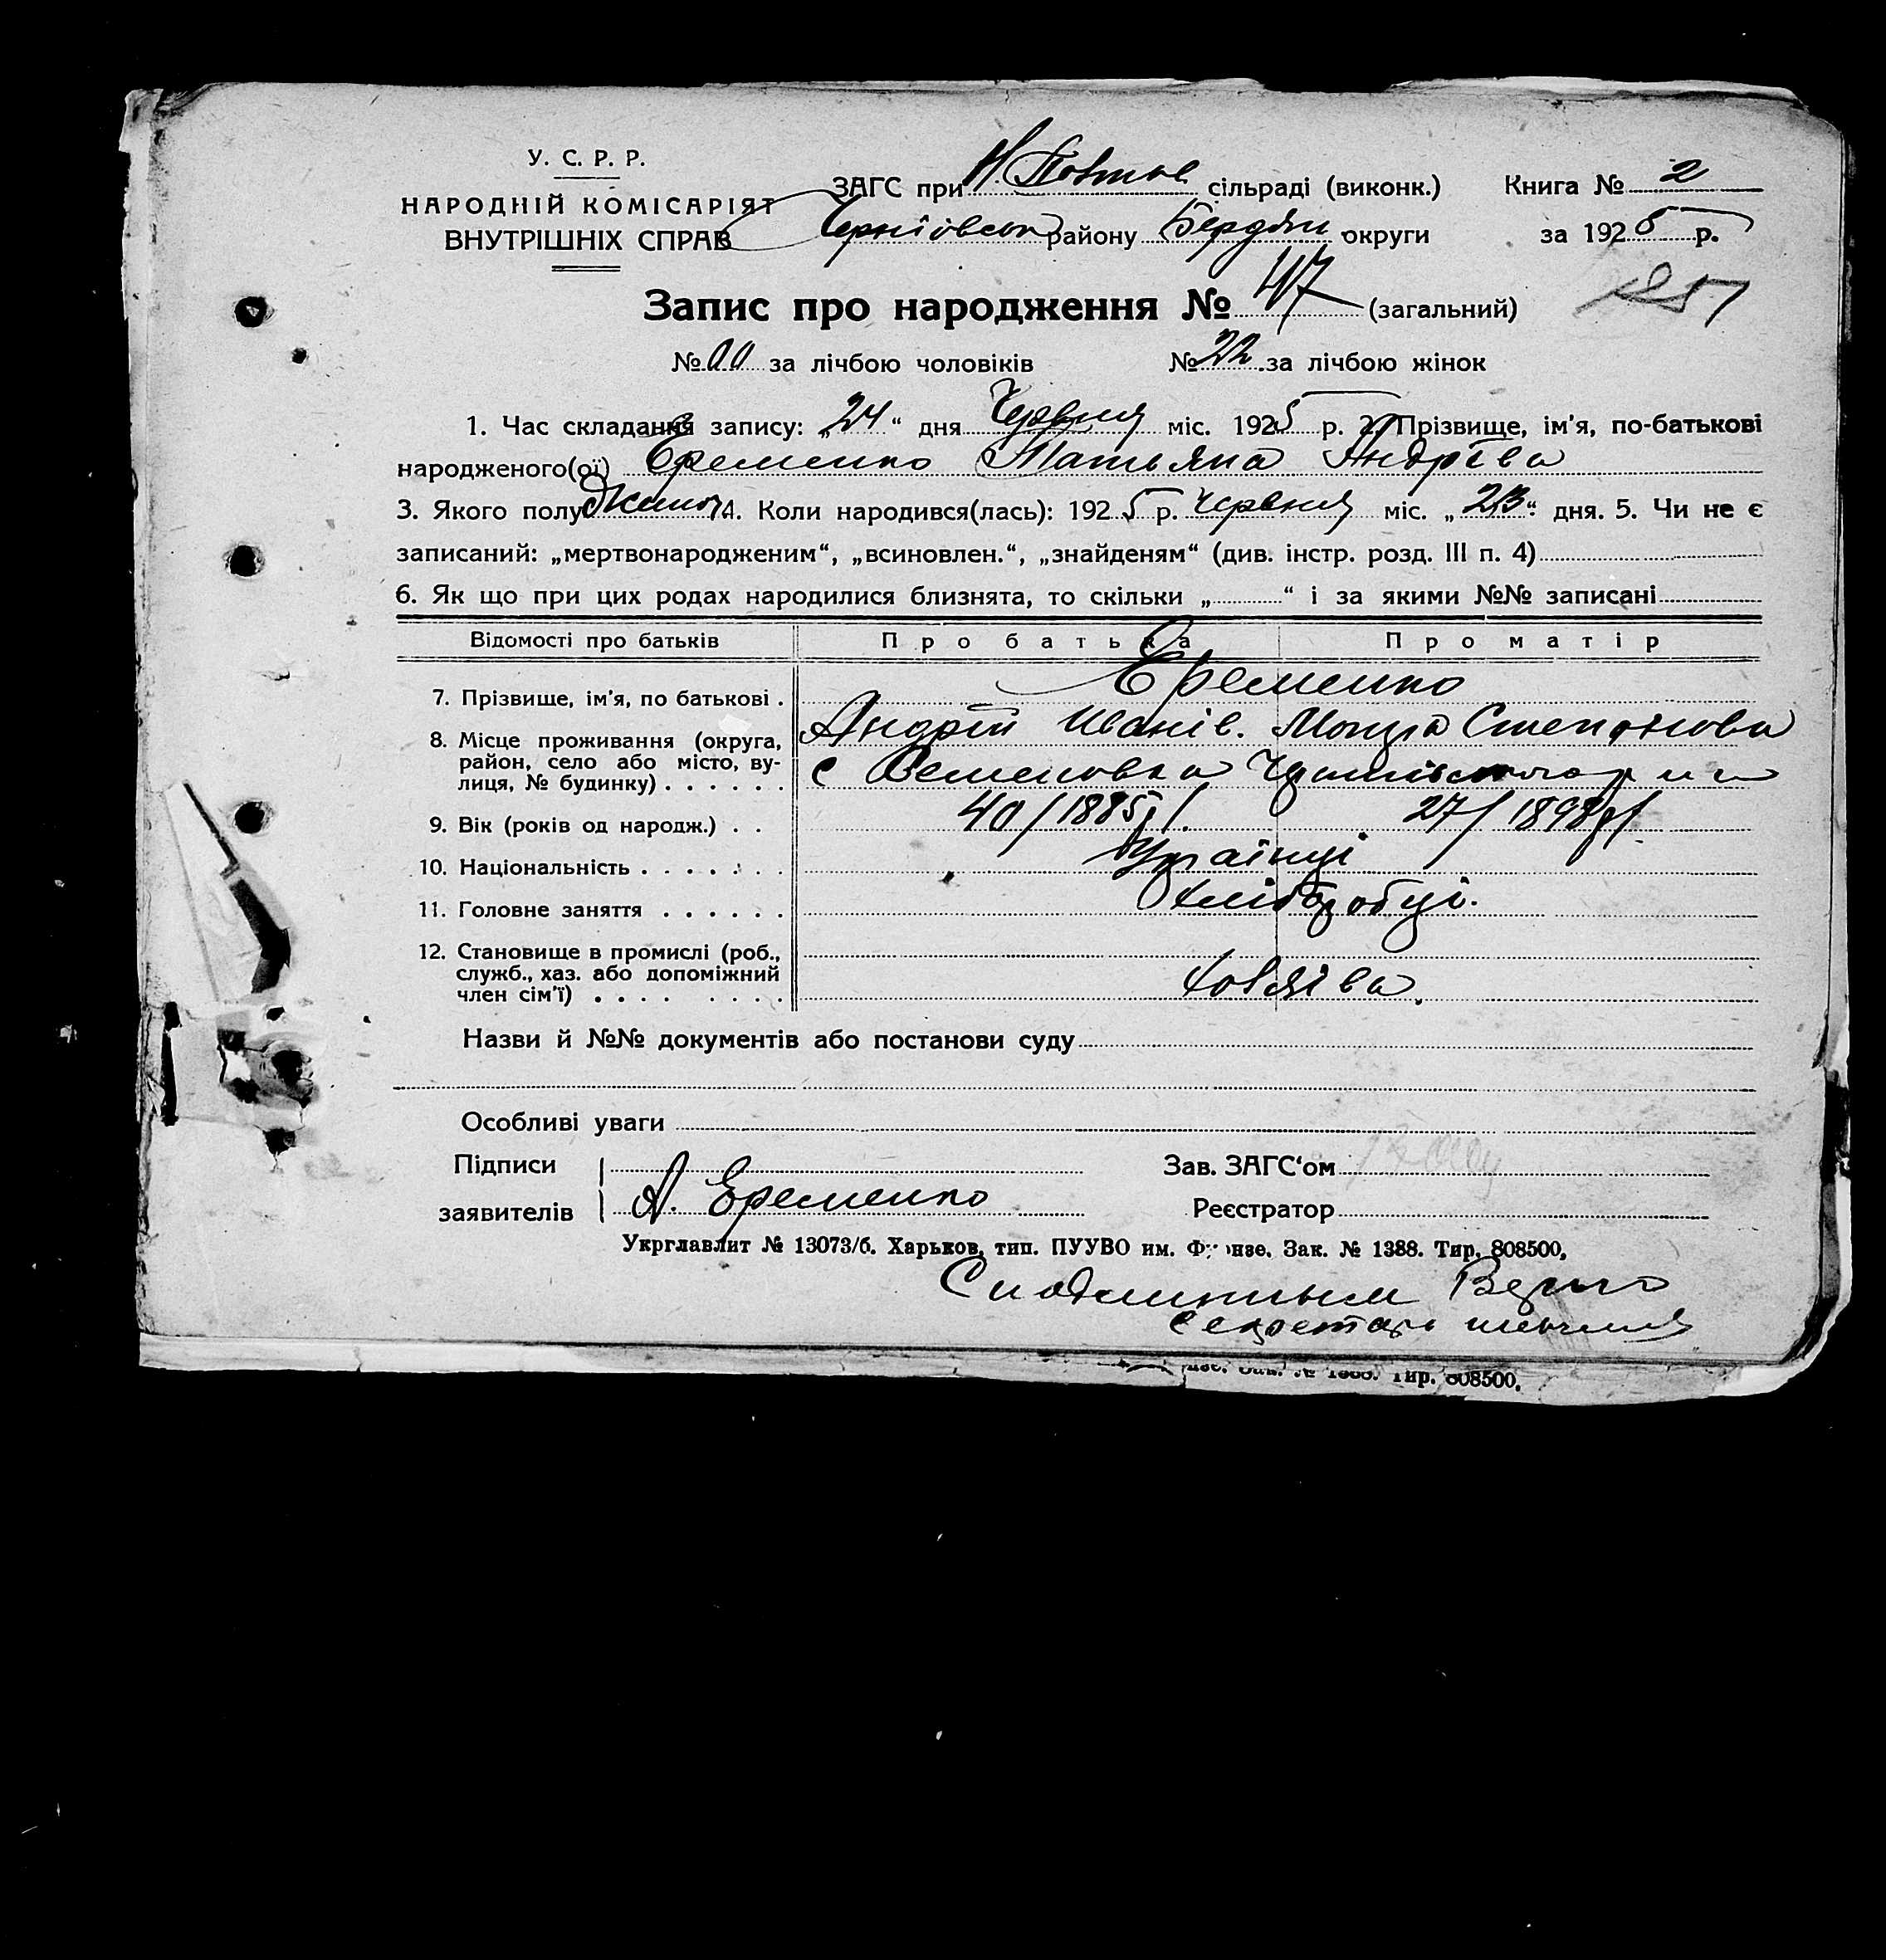 У. С. Р. Р.
НАРОДНІЙ КОМІСАРІЯТ
ВНУТРІШНІХ СПРАВ
ЗАГС при Н. сільраді (виконк.) Книга № 2
Чернігівськ району Бердян округи за 1925 р.
Запис про народження № 47 (загальний)
№ 00 за лічбою чоловіків № 22 за лічбою жінок
1. Час складання запису: „24“ дня Червня міс. 1925 р. 2. Прізвище, ім'я, по-батькові
народженого(ої) Еременко Татьяна Андрієва
3. Якого полу Жиноч 4. Коли народився(лась): 1925 р. Червня міс. „23“ дня. 5. Чи не є
записаний: „мертвонародженим“, „всиновлен.“, „знайденям“ (див. інстр. розд. III п. 4)
6. Як що при цих родах народилися близнята, то скільки „ “ і за якими №№ записані
Відомості про батьків Про батька Про матір
7. Прізвище, ім'я, по батькові . Еременко
Андрій Иванів. Степанова
8. Місце проживання (округа,
район, село або місто, ву-
лиця, № будинку) . . . . . . с Семеновка
9. Вік (років од народж.) . . 40/1885р/. 27/1898р/.
10. Національність . . . . . . . Українці
11. Головне заняття . . . . . . Хлібороби.
12. Становище в промислі (роб.,
служб., хаз. або допоміжний
член сім'ї) . . . . . . . .
Назви й №№ документів або постанови суду
Особливі уваги
Підписи Зав. ЗАГС‘ом
заявителів А. Еременко Реєстратор
Укрглавлит № 13073/б. Харьков, тип. ПУУВО им. Фрунзе. Зак. № 1388. Тир. 808500,
С подлинным Верно
Секретарь
Зак. № 1388. Тир. 808500,